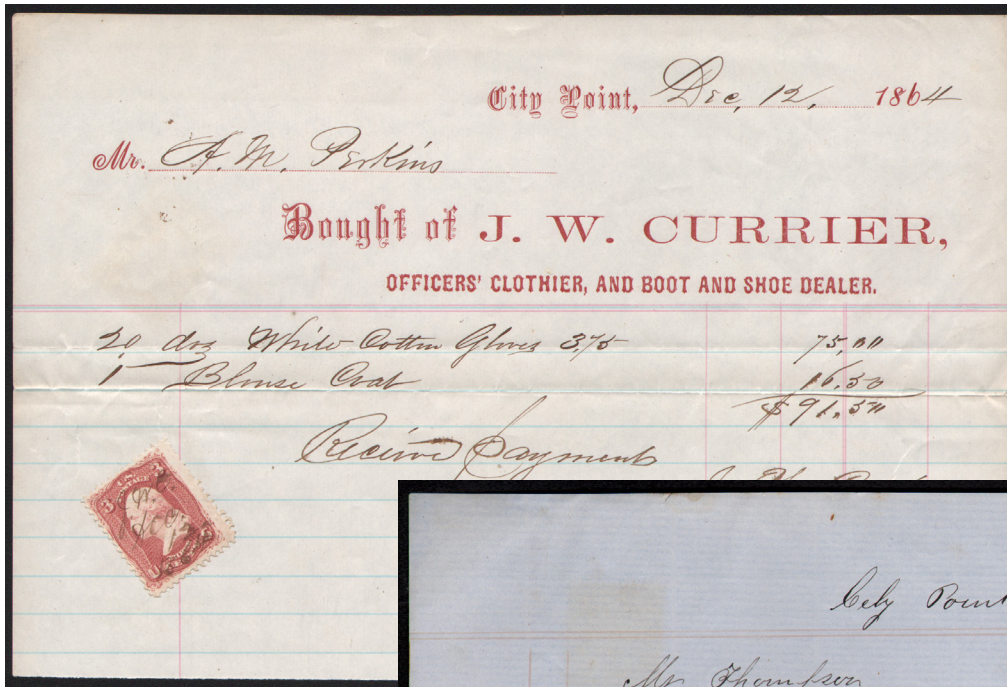 City Point, Dec, 12, 1864
Mr. A. M. Perkins
Bought of J. W. CURRIER,
OFFICERS' CLOTHIER, AND BOOT AND SHOE DEALER.
20 doz White Cotton Gloves 375 75,00
1 Blouse Coat 16.50
$91.50
Receive Payment
3 3
U.S. POSTAGE
City Point
Mr Thompson